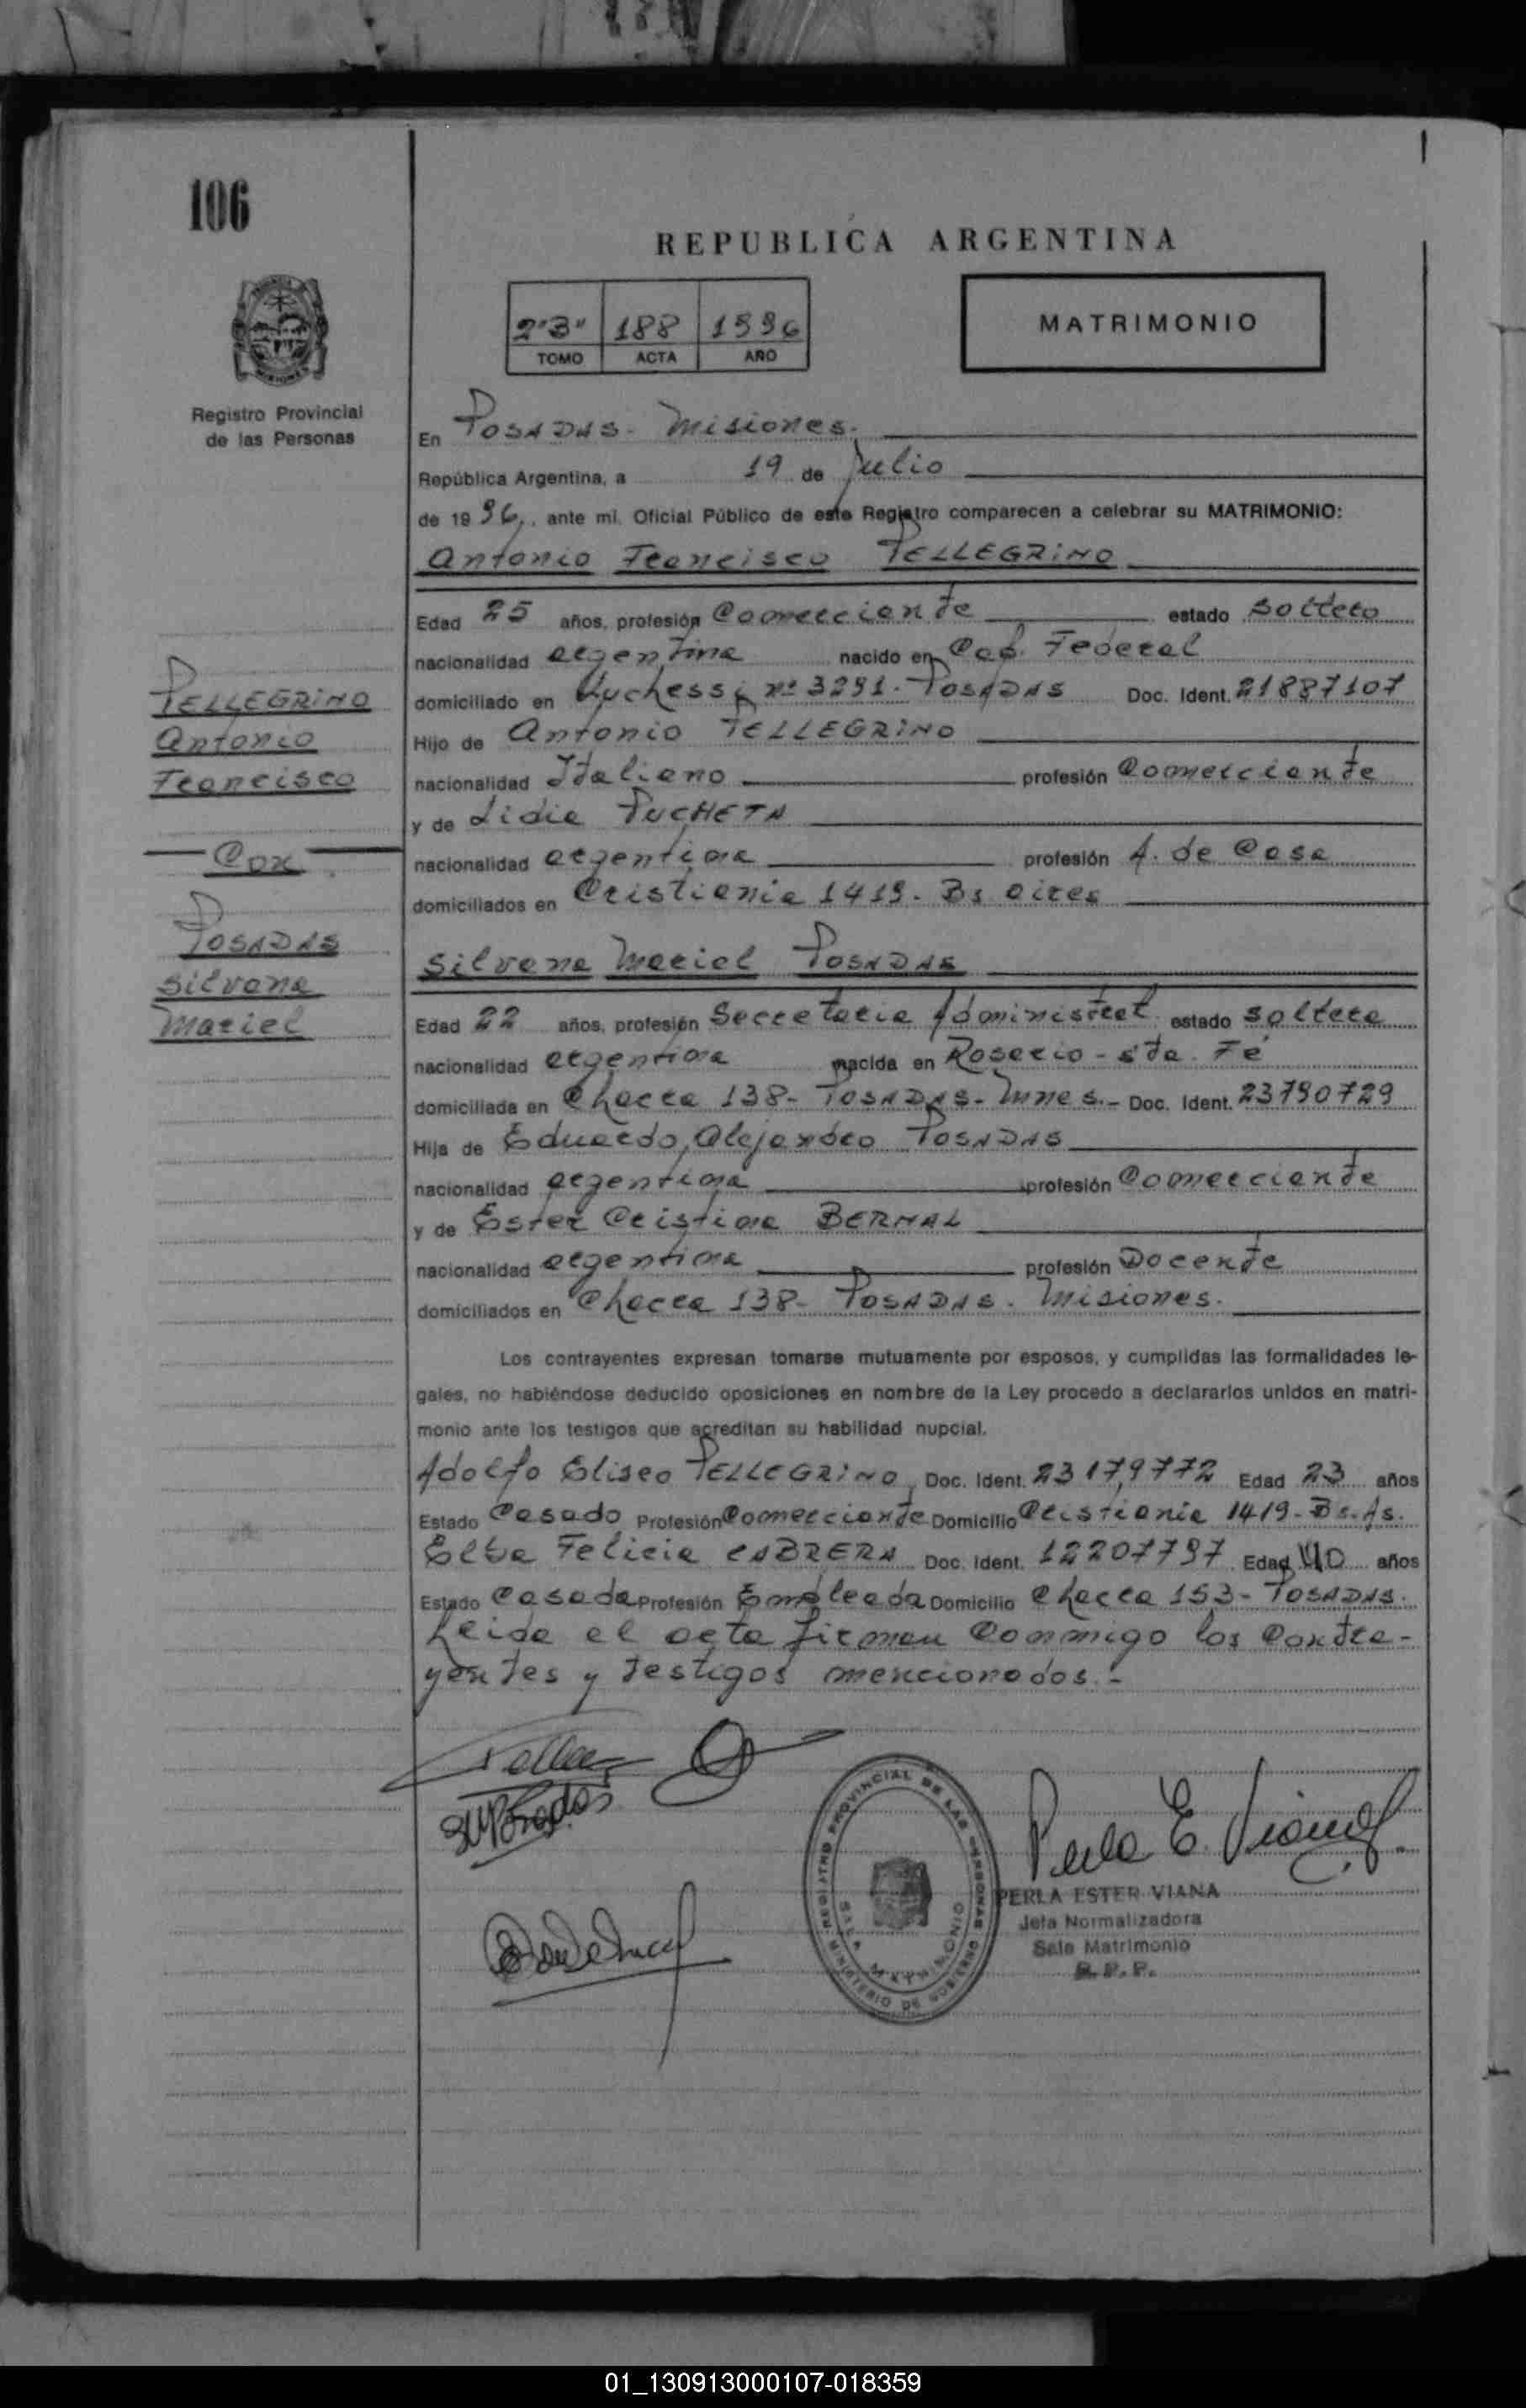 106
REPUBLICA ARGENTINA
2"B" 188 1996
TOMO ACTA AÑO
MATRIMONIO
Registro Provincial
de las Personas
En POSADAS - Misiones.
República Argentina, a 19 de Julio
de 1996, ante mí, Oficial Público de este Registro comparecen a celebrar su MATRIMONIO:
Antonio Francisco PELLEGRINO
Edad 25 años, profesión Comerciante estado soltero
nacionalidad argentina nacido en Cap. Federal
domiciliado en nº 3291. POSADAS Doc. Ident. 21887107
Hijo de Antonio PELLEGRINO
nacionalidad Italiano profesión Comerciante
y de Lidia PUCHETA
nacionalidad argentina profesión A. de Casa
domiciliados en Cristiania 1419. Bs aires
PELLEGRINO
Antonio
Francisco
Con
POSADAS
Silvana
Mariel
Silvana Mariel POSADAS
Edad 22 años, profesión Secretaria Administrat. estado soltera
nacionalidad argentina nacida en Rosario - Sta. Fe
domiciliada en Chacra 138- POSADAS- Mnes.- Doc. Ident. 23790729
Hija de Eduardo Alejandro POSADAS
nacionalidad argentina profesión Comerciante
y de Ester Cristina BERNAL
nacionalidad argentina profesión Docente
domiciliados en Chacra 138- POSADAS. Misiones.
Los contrayentes expresan tomarse mutuamente por esposos, y cumplidas las formalidades le-
gales, no habiéndose deducido oposiciones en nombre de la Ley procedo a declararlos unidos en matri-
monio ante los testigos que acreditan su habilidad nupcial.
Adolfo Eliseo PELLEGRINO Doc. Ident. 23179772 Edad 23 años
Estado Casado Profesión Comerciante Domicilio Cristiania 1419- Bs. As.
Elba Felicia CABRERA Doc. Ident. 12207797 Edad 40 años
Estado Casada Profesión Empleada Domicilio Chacra 153- POSADAS.
Leida el acta firman conmigo los contra-
yentes y testigos mencionados.-
SMPosadas
REGISTRO PROVINCIAL DE LAS PERSONAS
SALA MATRIMONIO
MINISTERIO DE GOBIERNO
Perla E. Viana
PERLA ESTER VIANA
Jefa Normalizadora
Sala Matrimonio
R.P.P.
01_130913000107-018359